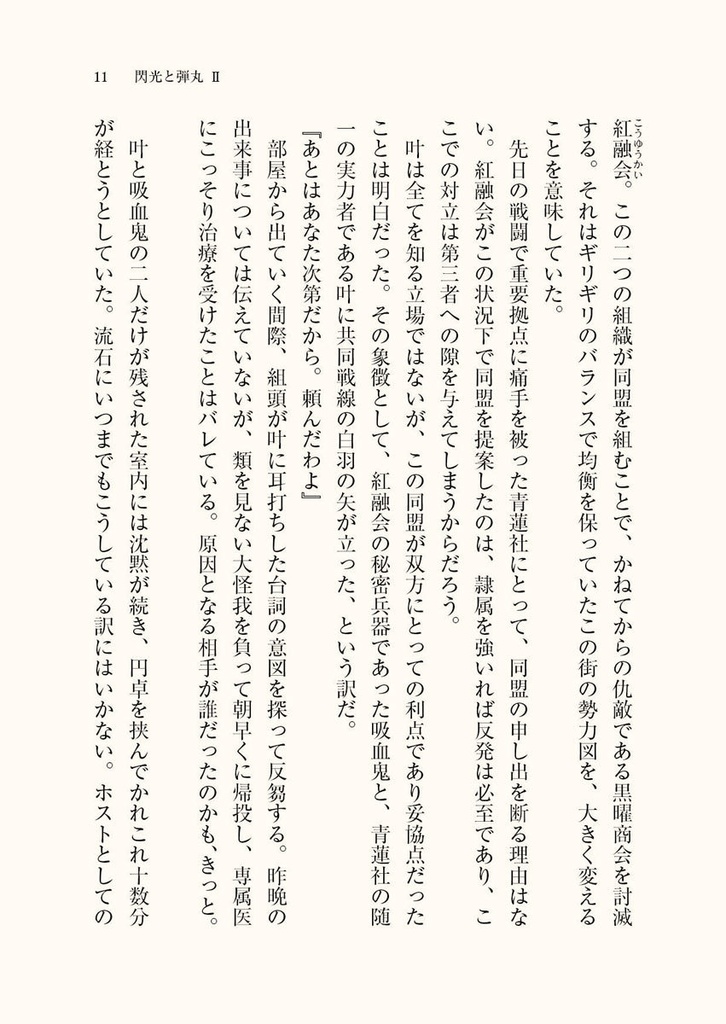 11 閃光と弾丸 Ⅱ
紅融会。この二つの組織が同盟を組むことで、かねてからの仇敵である黒曜商会を討滅
こうゆうかい
する。それはギリギリのバランスで均衡を保っていたこの街の勢力図を、大きく変える
ことを意味していた。
　先日の戦闘で重要拠点に痛手を被った青蓮社にとって、同盟の申し出を断る理由はな
い。紅融会がこの状況下で同盟を提案したのは、隷属を強いれば反発は必至であり、こ
こでの対立は第三者への隙を与えてしまうからだろう。
　叶は全てを知る立場ではないが、この同盟が双方にとっての利点であり妥協点だった
ことは明白だった。その象徴として、紅融会の秘密兵器であった吸血鬼と、青蓮社の随
一の実力者である叶に共同戦線の白羽の矢が立った、という訳だ。
『あとはあなた次第だから。頼んだわよ』
　部屋から出ていく間際、組頭が叶に耳打ちした台詞の意図を探って反芻する。昨晩の
出来事については伝えていないが、類を見ない大怪我を負って朝早くに帰投し、専属医
にこっそり治療を受けたことはバレている。原因となる相手が誰だったのかも、きっと。
　叶と吸血鬼の二人だけが残された室内には沈黙が続き、円卓を挟んでかれこれ十数分
が経とうとしていた。流石にいつまでもこうしている訳にはいかない。ホストとしての